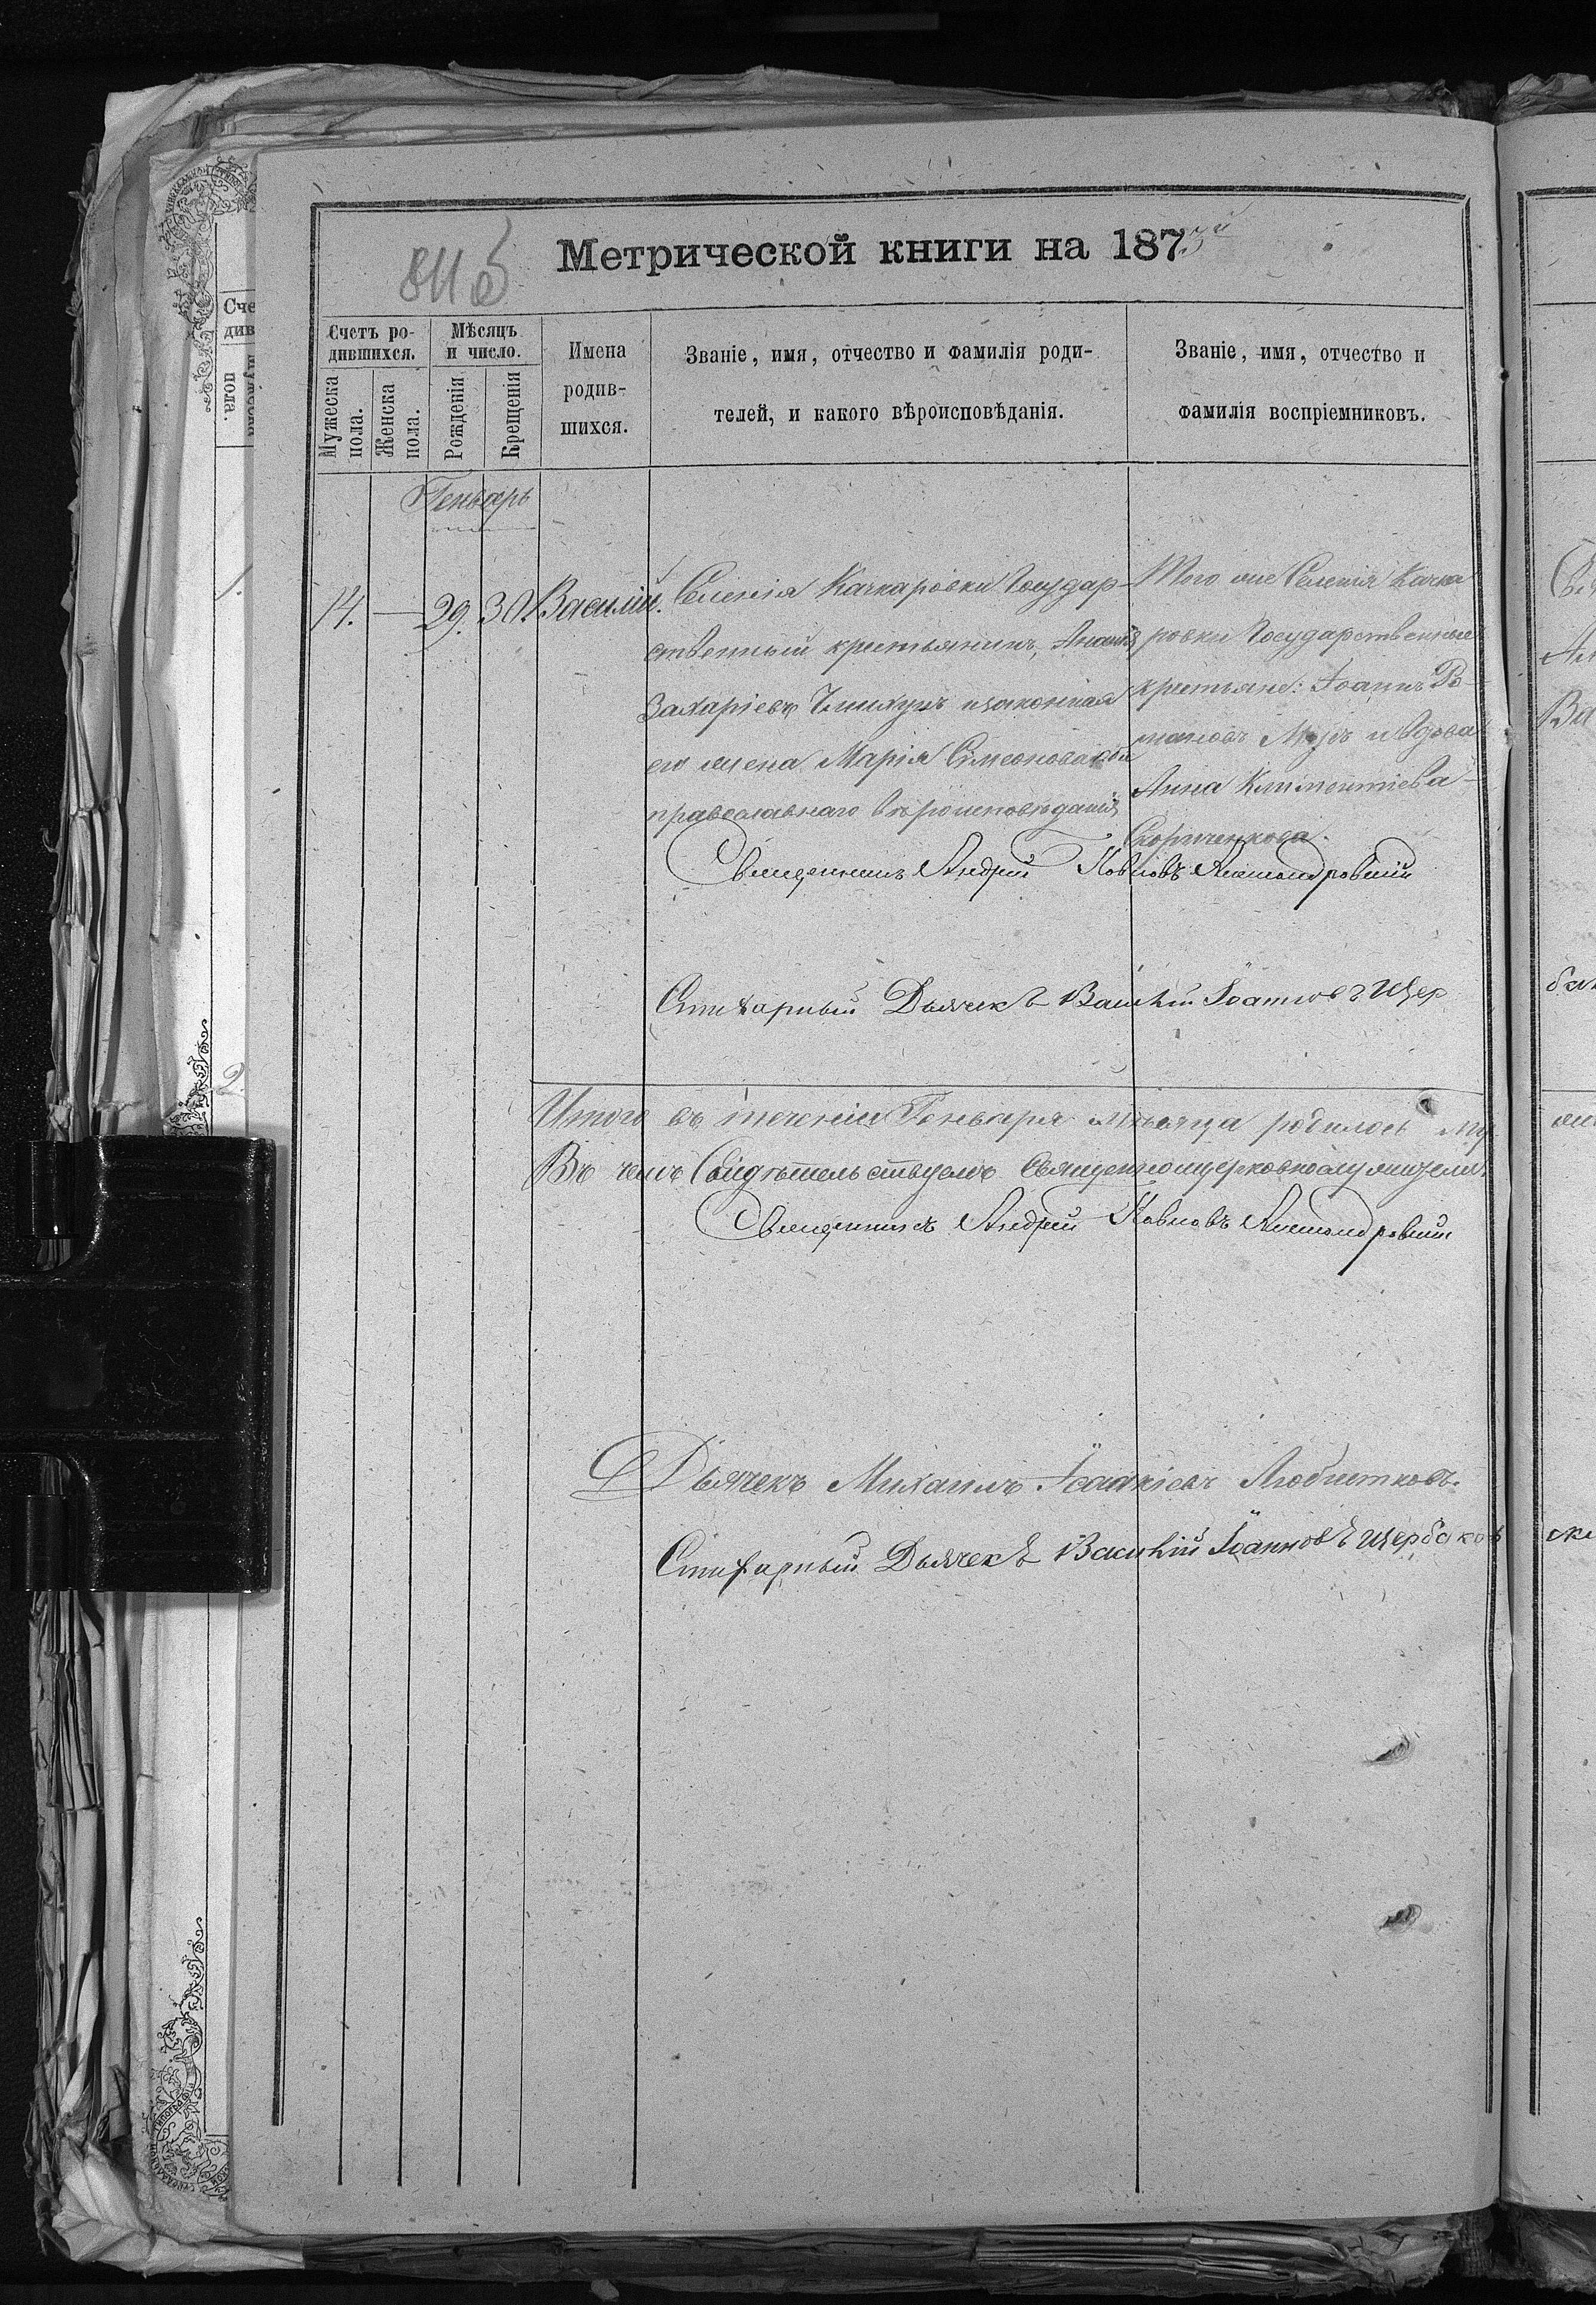 811б
Метрической книги на 1873й
Счетъ ро-
дившихся.
Мужеска
пола.
Женска
пола.
Мѣсяцъ
и число.
Рожденія
Крещенія
Имена
родив-
шихся.
Званіе, имя, отчество и фамилія роди-
телей, и какого вѣроисповѣданія.
Званіе, имя, отчество и
фамилія воспріемниковъ.
Геньварь
14. — 29. 30. Василій.
Селенія Качкаровки Государ-
ственный крестьянинъ,
Захаріевъ и законная
его жена Марія Сѵмеонова оба
православнаго вѣроисповѣданія
Того же Селенія Качка
ровки Государственные
крестьяне: Іоаннъ Ро-
мановъ и Вдова
Анна Климентіева
Священникъ Андрей Александровскій
Стихарный Дьячекъ Василій Іоанновъ Щер
Итого въ теченіи Геньваря мѣсяца родилось му
Въ чемъ Свидѣтельствуемъ Священноцерковнослужители:
Священникъ Андрей Александровскій
Дьячекъ Михаилъ
Стихарный Дьячекъ Василій Іоанновъ Щербаков